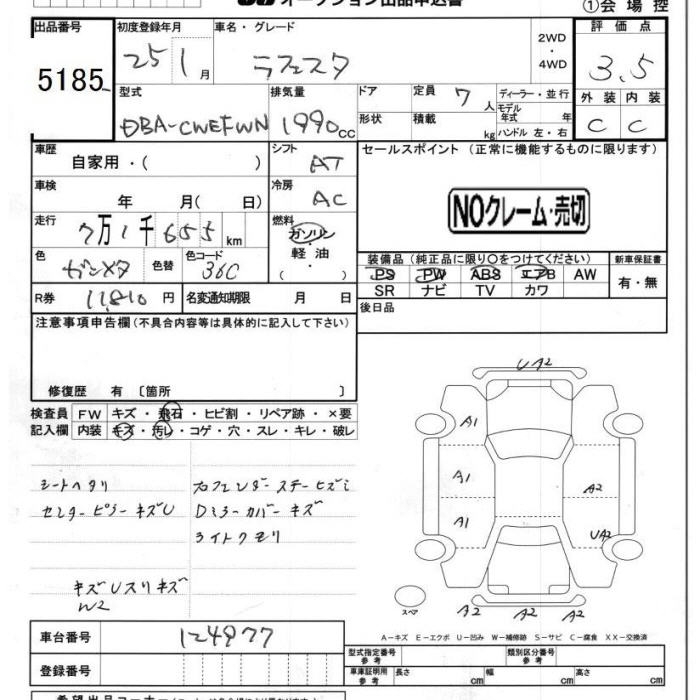 オークション出品申込書
①会場控
出品番号 初度登録年月 車名・グレード 2WD・4WD 評価点
5185 25 1月 ラフェスタ 3.5
型式 排気量 ドア 定員 7人 ディーラー・並行 外装 内装
DBA-CWEFWN 1990cc 形状 積載 kg モデル年式 年 ハンドル 左・右 C C
車歴 シフト セールスポイント (正常に機能するものに限ります)
自家用・( ) AT
車検 冷房
年 月( 日) AC
NOクレーム・売切
走行 7万1千655km 燃料 ガソリン・軽油・( )
色 ガンメタ 色替 色コード 36C
装備品 (純正品に限り○をつけてください) 新車保証書
PS PW ABS エアB AW 有・無
SR ナビ TV カワ
R券 11,810円 名変通知期限 月 日 後日品
注意事項申告欄 (不具合内容等は具体的に記入して下さい)
修復歴 有 〔箇所 〕
検査員 FW キズ・飛石・ヒビ割・リペア跡・×要
記入欄 内装 キズ・汚レ・コゲ・穴・スレ・キレ・破レ
シートヘタリ
センターピラーキズU
キズUスリキズ
W2
フェンダーステーヒズミ
Dミラーカバーキズ
ライトクモリ
UA2
A1
A1
A2
A1
UA2
スペア
A2 A2 A2
A-キズ E-エクボ U-凹み W-補修跡 S-サビ C-腐食 XX-交換済
車台番号 124977
登録番号
型式指定番号 参考 類別区分番号 参考
車庫証明用 参考 長さ cm 幅 cm 高さ cm
希望出品コーナー